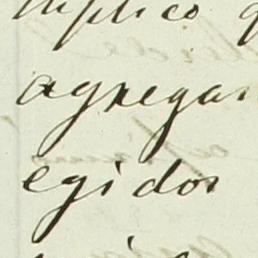 suplico q
agregar
egidos